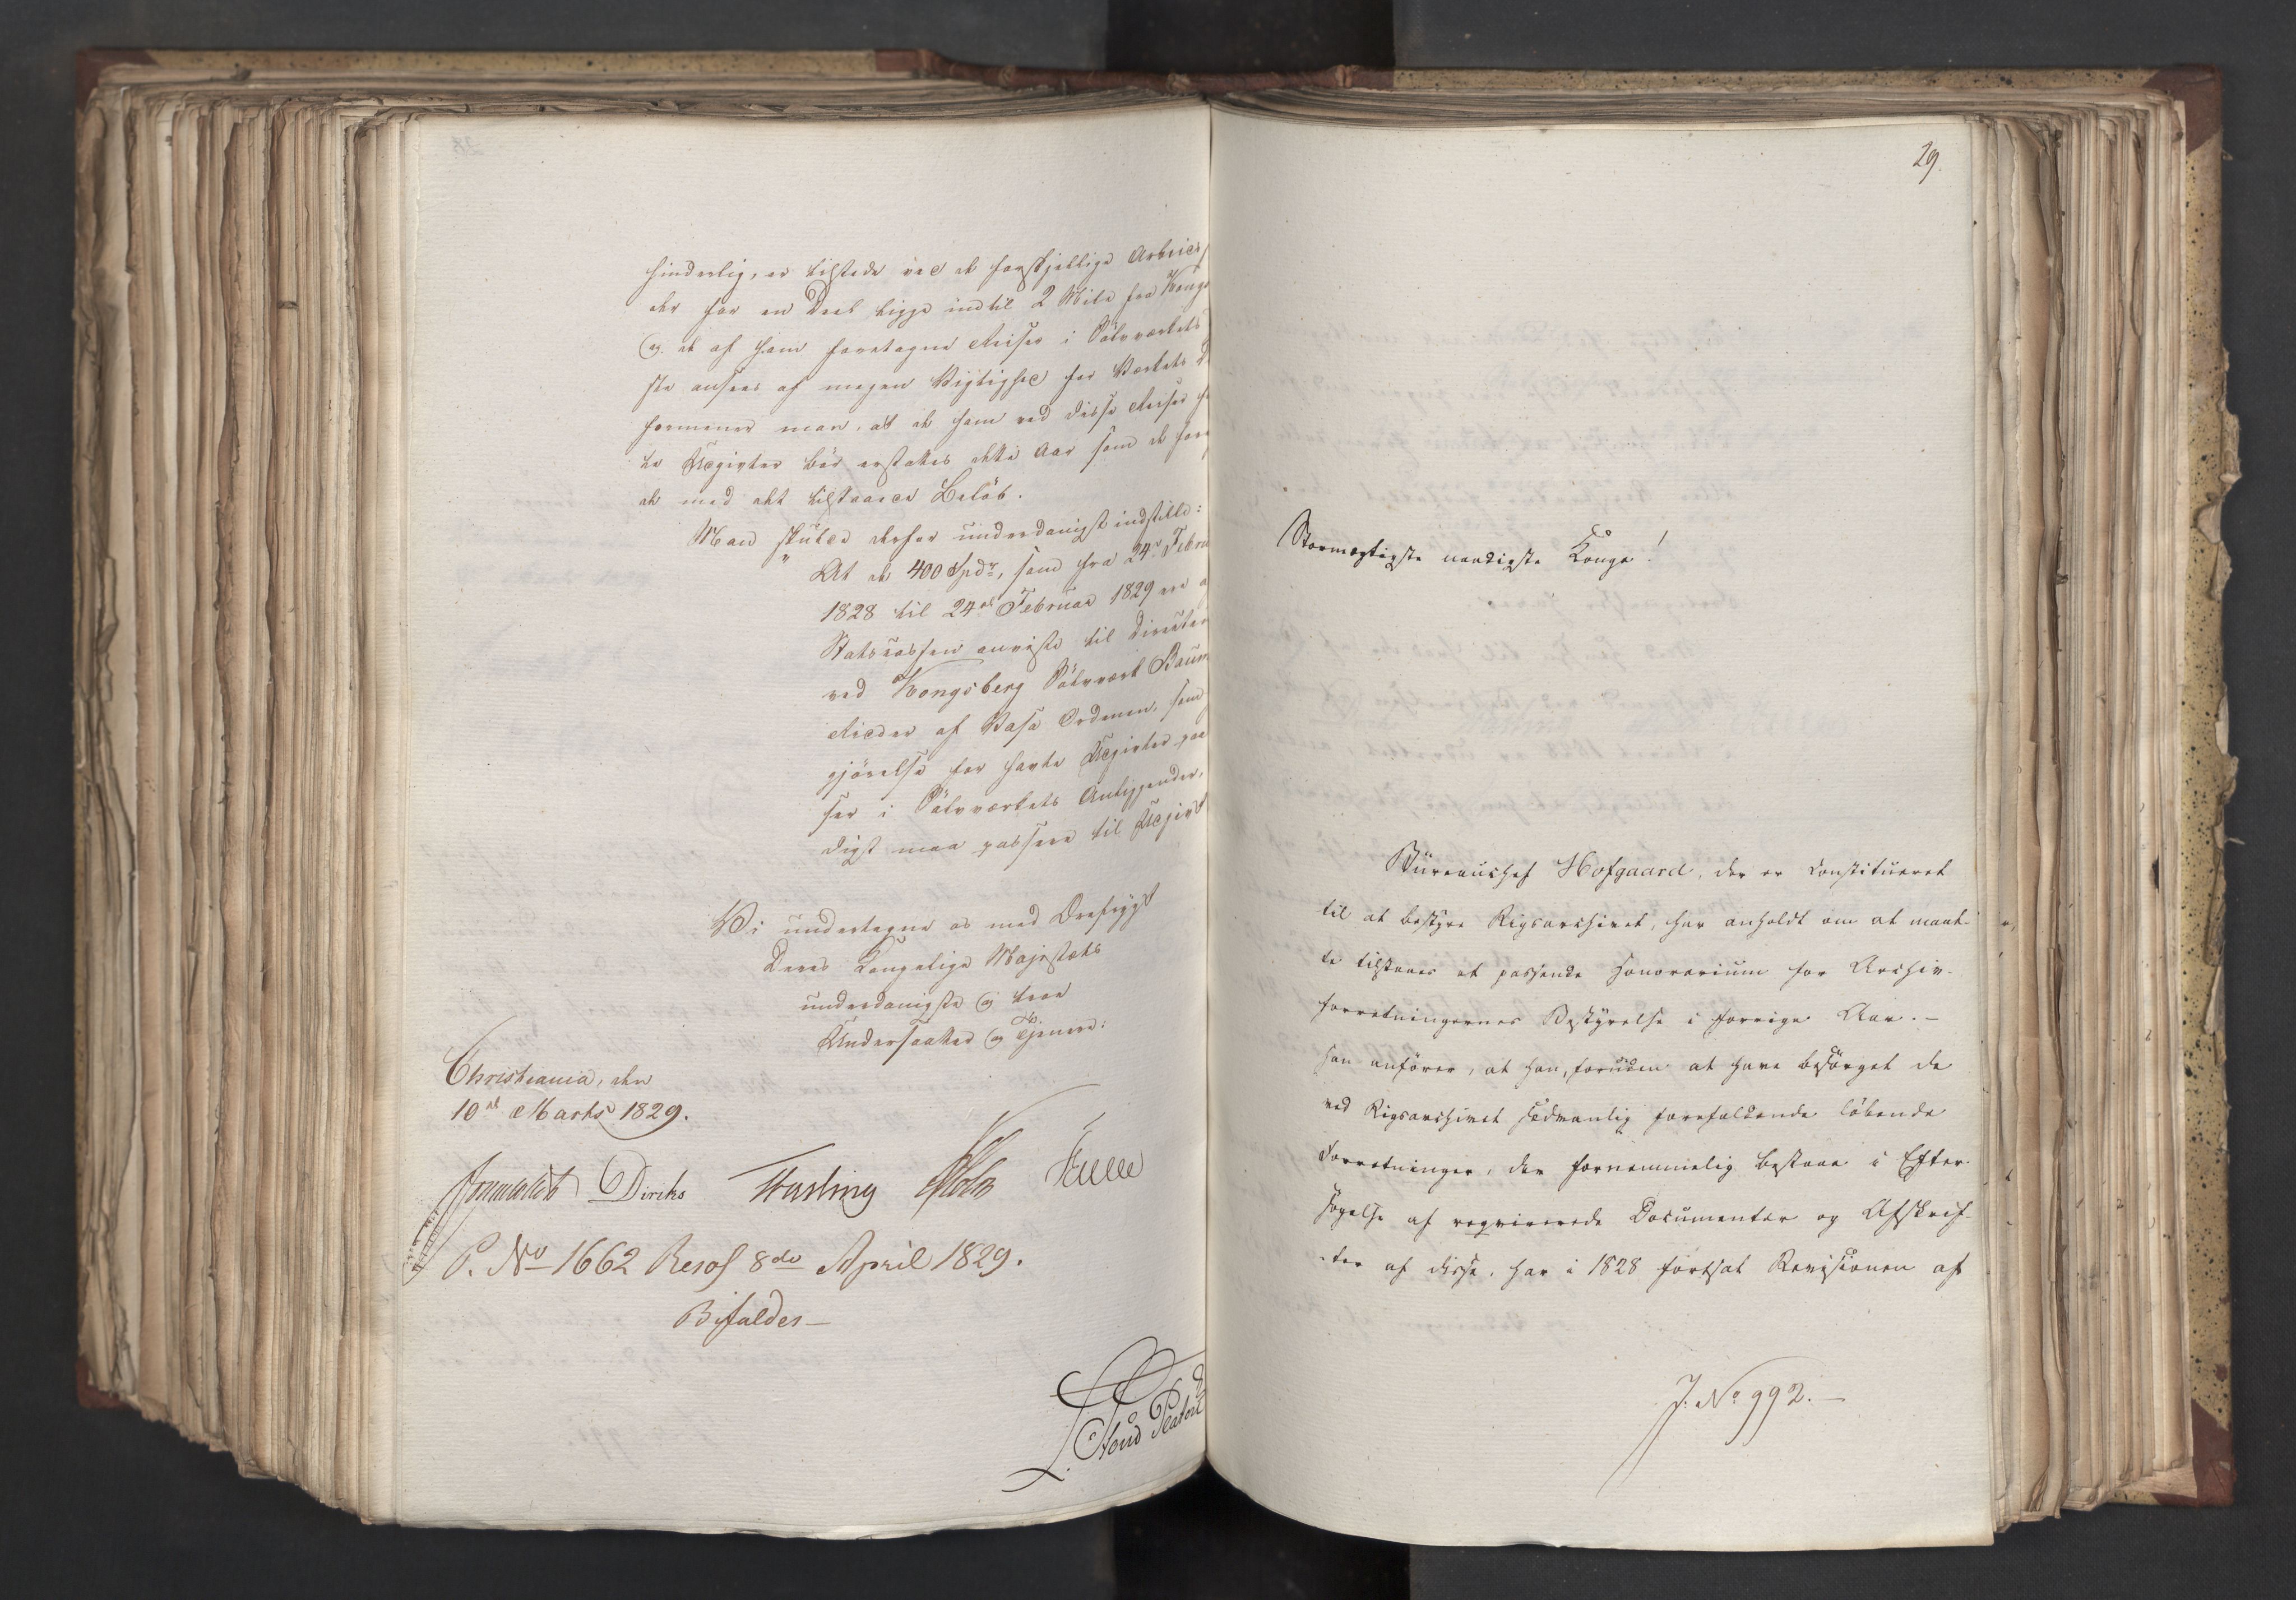 hinderlig, er tilstede ved de forskjellige Arbeids
der for en Deel ligge indtil 2 Mile fra Kongs
og de af ham foretagne Reiser i Sølvværkets
ste ansees af megen Vigtighed for Værkets
formener man, at de ham ved disse Reiser
te Udgivter bør erstattes dette Aar som de fore
de med det tilstaaede Beløb.
Man skulde derfor underdanigst indstille:
At de 400 Spdr, som fra 24de Febru
1828 til 24de Februar 1829 ere
Statscassen anviste til Directeu
ved Kongsberg Sølvværk Baum
Ridder af Vasa Ordenen, som
gjørelse for havte Udgivter paa
ser i Sølvværkets Anliggender,
digst maa passere til Udgivt
Vi undertegne os med Ærefrygt
Deres Kongelige Majestæts
underdanigste og troe
Undersaatter og Tjenere:
Christiania, den
10de Marts 1829.
Diriks
P. No 1662 Resol 8de April 1829.
Bifaldes—
29.
Stormægtigste naadigste Konge!
Bureauchef Hofgaard, der er constitueret
til at bestyre Rigsarchivet, har anholdt om at maat-
te tilstaaes et passende Honorarium for Archiv-
forretningernes Bestyrelse i forrige Aar.—
Han anfører, at han, foruden at have besørget de
ved Rigsarchivet sædvanlig forefaldende løbende
Forretninger, der fornemmelig bestaae i Efter-
søgelse af reqvirerede Documenter og Afskrif-
ter af disse, har i 1828 fortsat Revisionen af
J. No 992.—